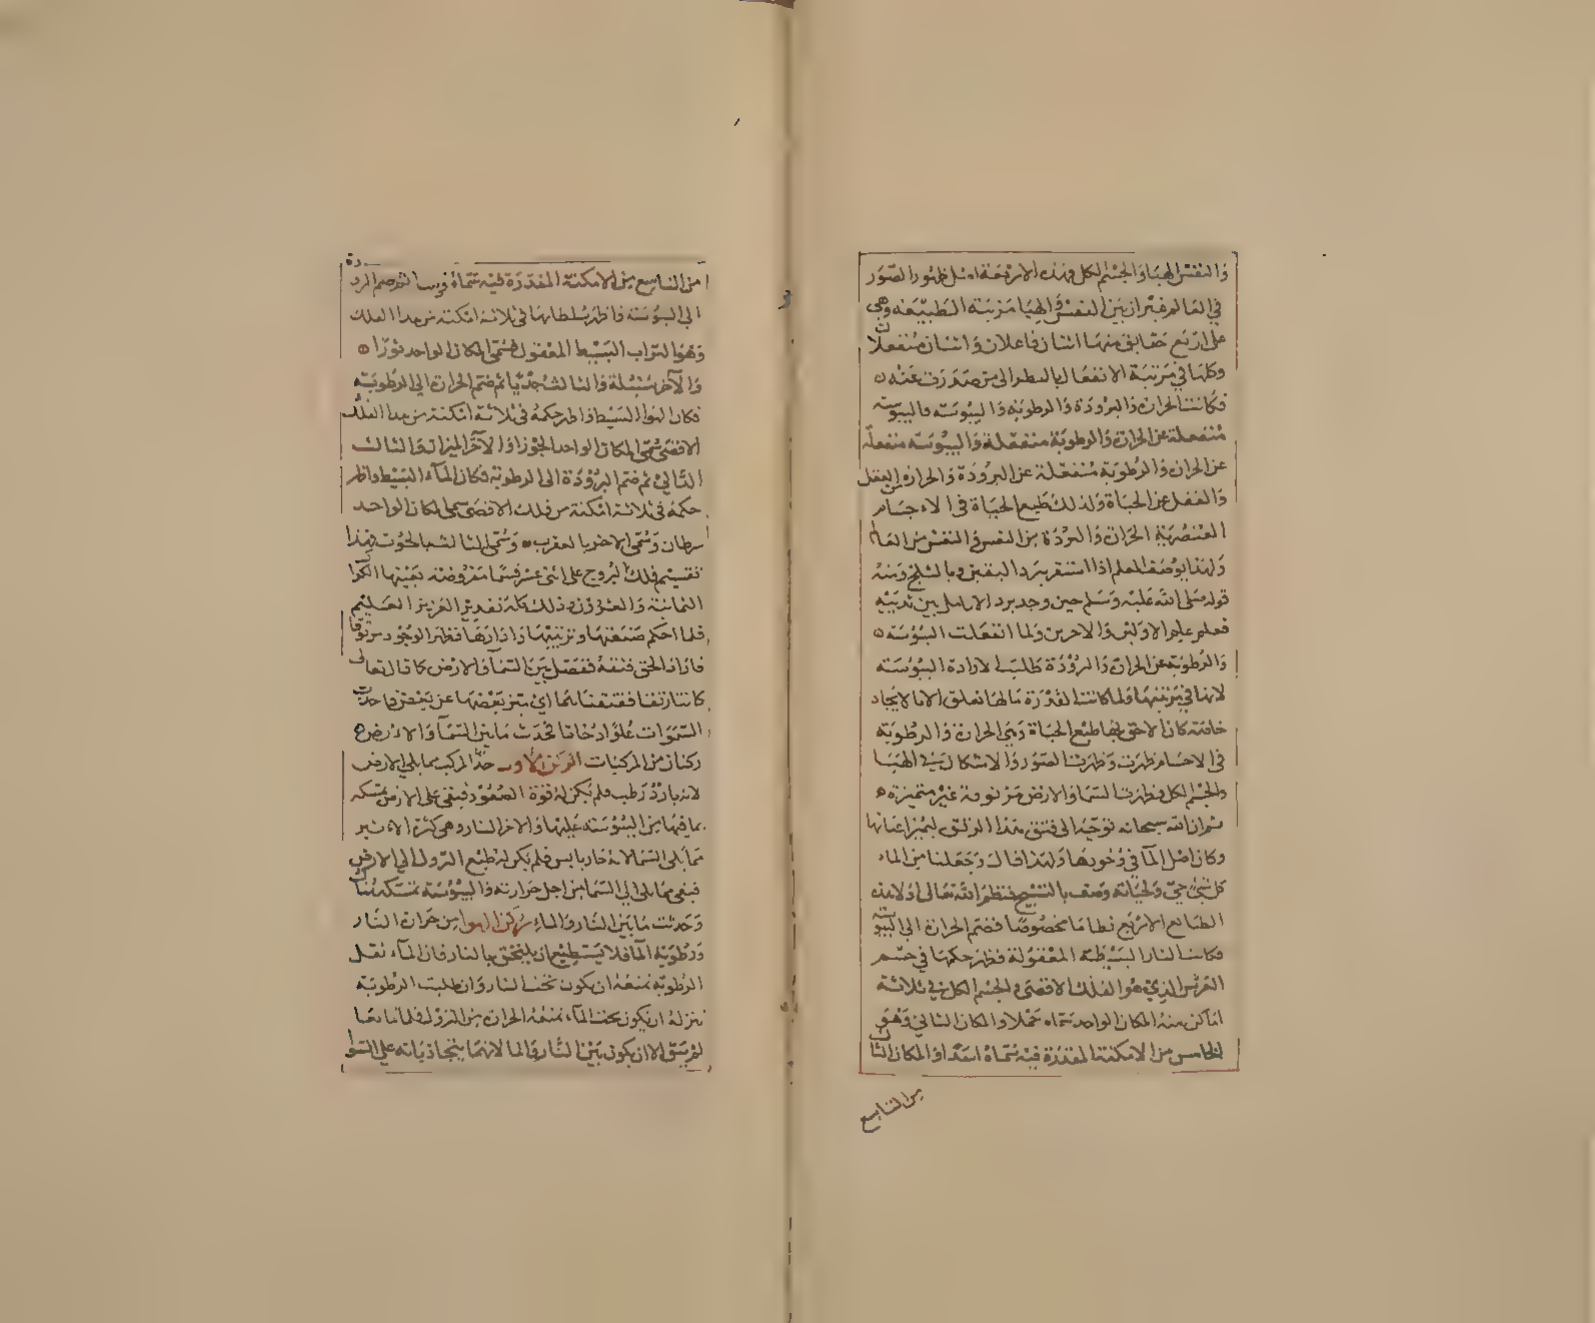 والنفس والهبا والجسم الكل فهذه الاربعة اصل ظهور الصور
في العالم غير ان بين النفس والهبا مرتبة الطبيعة وهي
على اربع حقايق منها اثنان فاعلان واثنان منفعلان
وكلها في مرتبة الانفعال بالنظر الى من صدرت عنه
فكانت الحرارة والبرودة والرطوبة واليبوسة فاليبوسة
منفعلة عن الحرارة والرطوبة منفعلة واليبوسة منفعلة
عن الحرارة والرطوبة منفعلة عن البرودة والحرارة من العقل
والعقل عن الحياة ولذلك طبع الحياة في الاجسام
العنصرية الحرارة والبرودة من النفس والنفس من العلم
ولهذا يوصف العلم اذا استقر ببرد اليقين وبالثلج ومنه
قوله صلى الله عليه وسلم حين وجد برد الانامل بين ثدييه
فعلم علم الاولين والاخرين ولما انفعلت اليبوسة
والرطوبة عن الحرارة والبرودة طلبت الارادة اليبوسة
لانها في مرتبتها ولما كانت القدرة مالها تعلق الا بالايجاد
خاصة كان الاحق بها طبع الحياة وهي الحرارة والرطوبة
في الاجسام ظهرت وظهرت الصور والاشكال في الهبا
والجسم الكل فظهرت السما والارض مرتوقة غير متميزة
ثم ان الله سبحانه توجه الى فتق هذا الرتق ليميز اعيانها
وكان اصل الما في وجودها ولهذا قال وجعلنا من الماء
كل شيء حي ولحياته وصف بالتسبيح فنظم الله تعالى اولا هذه
الطبائع الاربع نظاما مخصوصا فضم الحرارة الى اليبوسة
فكانت النار البسيطة المعقولة فظهر حكمها في جسم
العرش الذي هو الفلك الاقصى والجسم الكل في ثلاثة
اماكن منه المكان الواحد سماه حملا والمكان الثاني وهو
الخامس من الامكنة المقدرة فيه سماه اسدا والمكان الثالث
من التاسع
من التاسع من الامكنة المقدرة فيه سماه قوسا ثم ضم البرودة
الى اليبوسة فاظهر سلطانها في ثلاثة امكنة من هذا الفلك
وهو التراب البسيط المعقول فسمى المكان الواحد ثورا
والآخر سنبلة والثالث جديا ثم ضم الحرارة الى الرطوبة
فكان الهوا البسيط واظهر حكمه في ثلاثة امكنة من هذا الفلك
الاقصى سمى المكان الواحد الجوزا والآخر الميزان والثالث
الدالي ثم ضم البرودة الى الرطوبة فكان الماء البسيط واظهر
حكمه في ثلاثة امكنة من فلك الاقصى سمى المكان الواحد
سرطان وسمى الاخر بالعقرب وسمى الثالث بالحوت فهذا
تقسيم فلك البروج على اثنى عشر قسما مفروضة تعينها الكواكب
الثمانية والعشرون وذلك كله تقدير العزيز العليم
فلما احكم صنعتها وترتيبها وادارها فظهر الوجود مرتوقا
فاراد الحق فتقه ففصل بين السما والارض كما قال تعالى
كانتا رتقا ففتقناهما اي ميز بعضها عن بعض فاحدث
السموات علوا دخانا فحدث ما بين السماء والارض
ركنان من المركبات الركن الاول هذا المركب مما يلي الارض
لانه بارد رطب فلم يكن له قوة الصعود فبقي على الارض تمسكه
بما فيها من اليبوسة عليها والاخر النار وهي كرة الاثير
مما يلي السما لانه حار يابس فلم يكن له طبع النزول الى الارض
فبقي مما يلي السما من اجل حرارته واليبوسة تمسكه هناك
وحدثت ما بين النار والماء ركن الهوا من حرارة النار
ورطوبة الما فلا يستطيع ان يلتحق بالنار فان الماء ثقل
الرطوبة تمنعه ان يكون تحت النار وان طلبت الرطوبة
تنزله ان يكون تحت الماء تمنعه الحرارة من النزول فلما تمانعا
لم يبق الا ان يكون بين النار والما لانهما يتجاذبانه على السوا